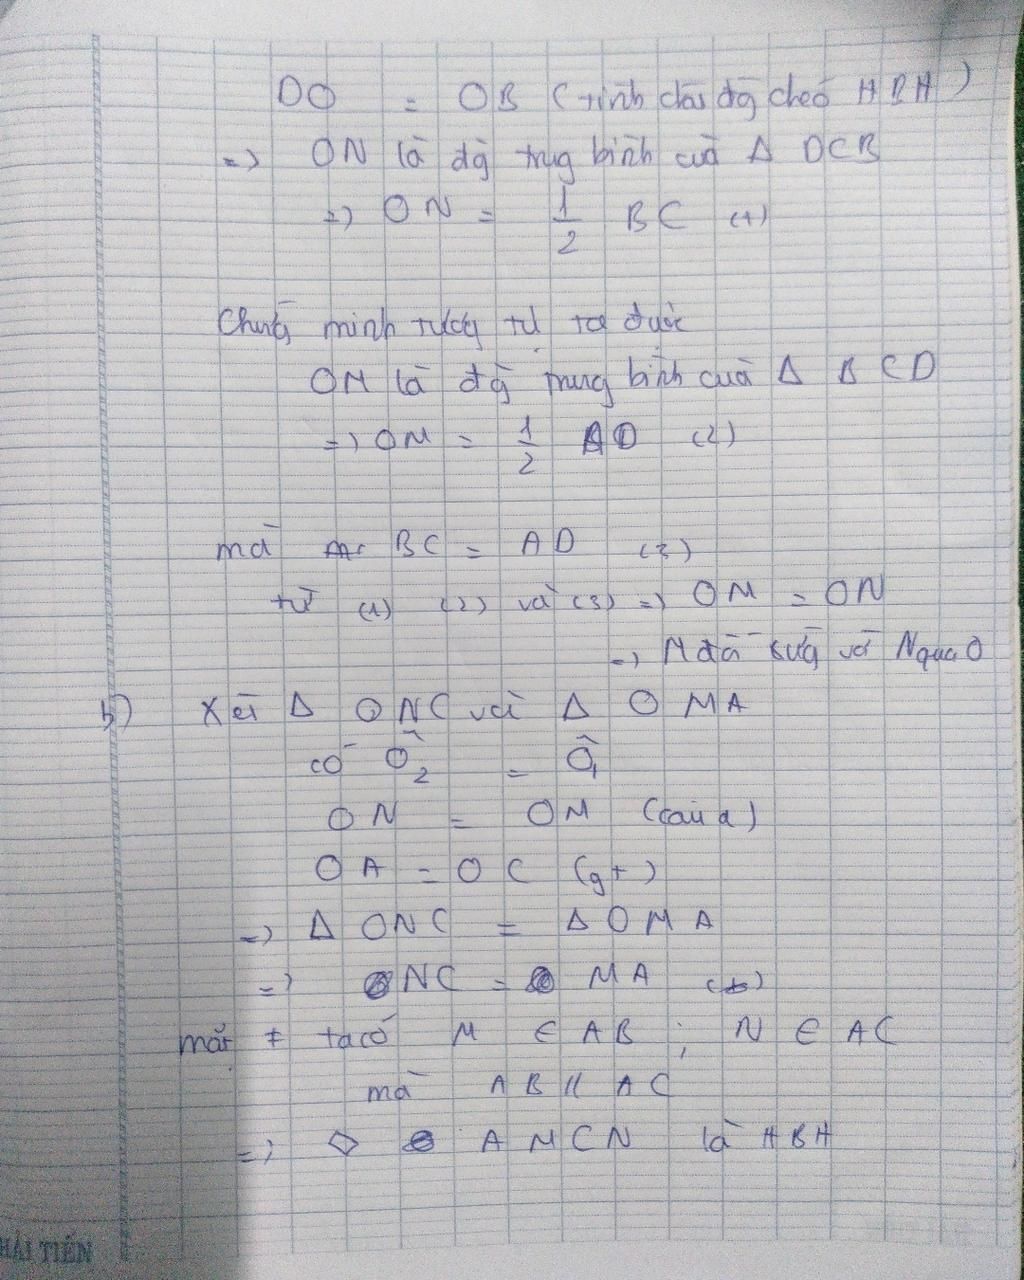 DO = OB (tính chất đg chéo HBH)
=) ON là đg trug bình cuả Δ DCB
=) ON = 1/2 BC (1)
Chứng minh tương tự ta được
OM là đg trung bình cuả Δ BCD
=) OM = 1/2 AD (2)
mà BC = AD (3)
từ (1) (2) và (3) =) OM = ON
=) M đối xứng với N qua O
b) Xét Δ ONC và Δ OMA
có Ô2 = Ô1
ON = OM (câu a)
OA = OC (gt)
=) Δ ONC = Δ OMA
=) NC = MA (*)
mặt ≠ ta có M ∈ AB ; N ∈ AC
mà AB // AC
=) ◇ AMCN là HBH
HẢI TIẾN